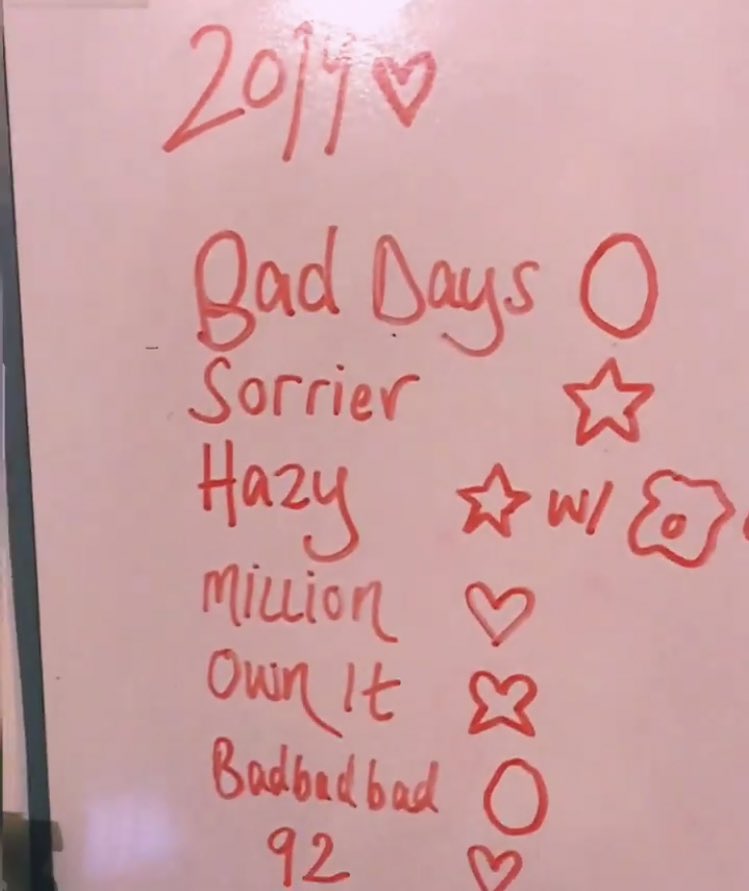 2019♡
Bad Days ○
Sorrier ☆
Hazy ☆ w/
Million ♡
Own It
Badbadbad ○
92 ♡